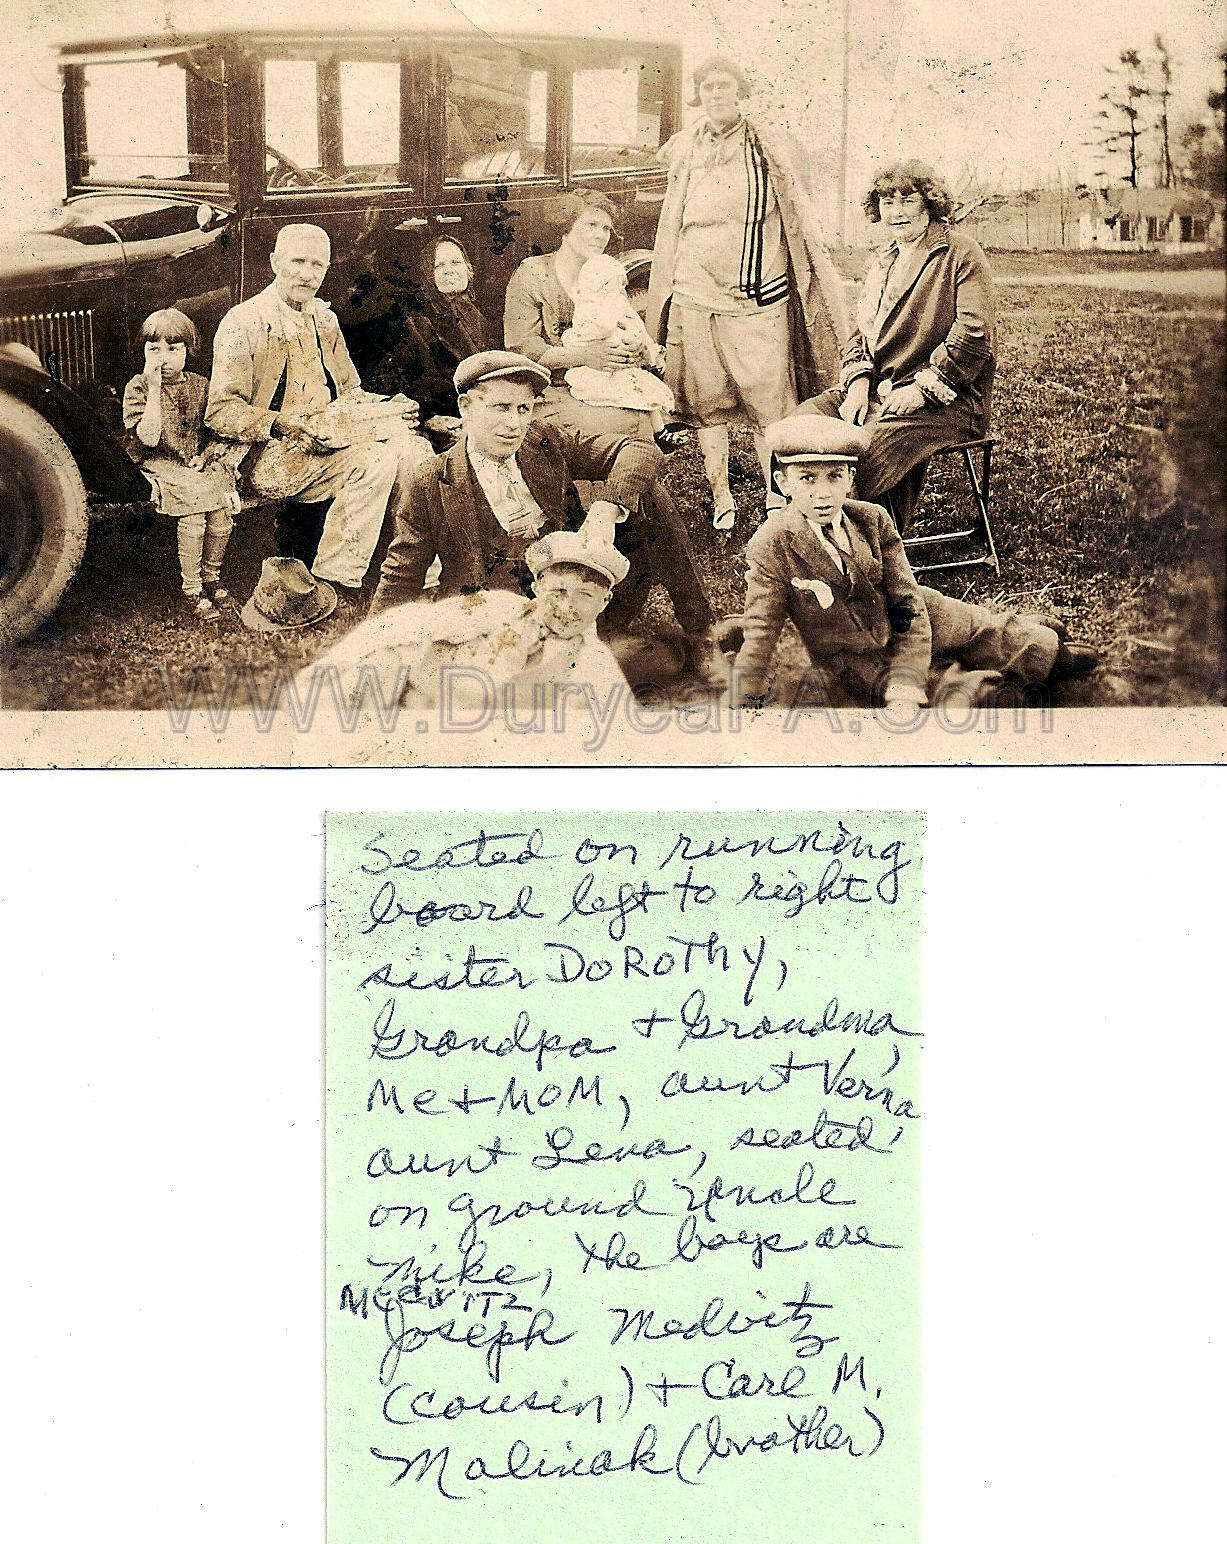 WWW.DuryeaPA.Com
Seated on running
board left to right
sister DOROTHY,
Grandpa + Grandma,
Me + MOM, aunt Verna,
aunt Lena, seated
on ground Uncle
Mike, the boys are
MEDVITZ
Joseph Medvitz
(cousin) + Carl M.
Malinak (brother)